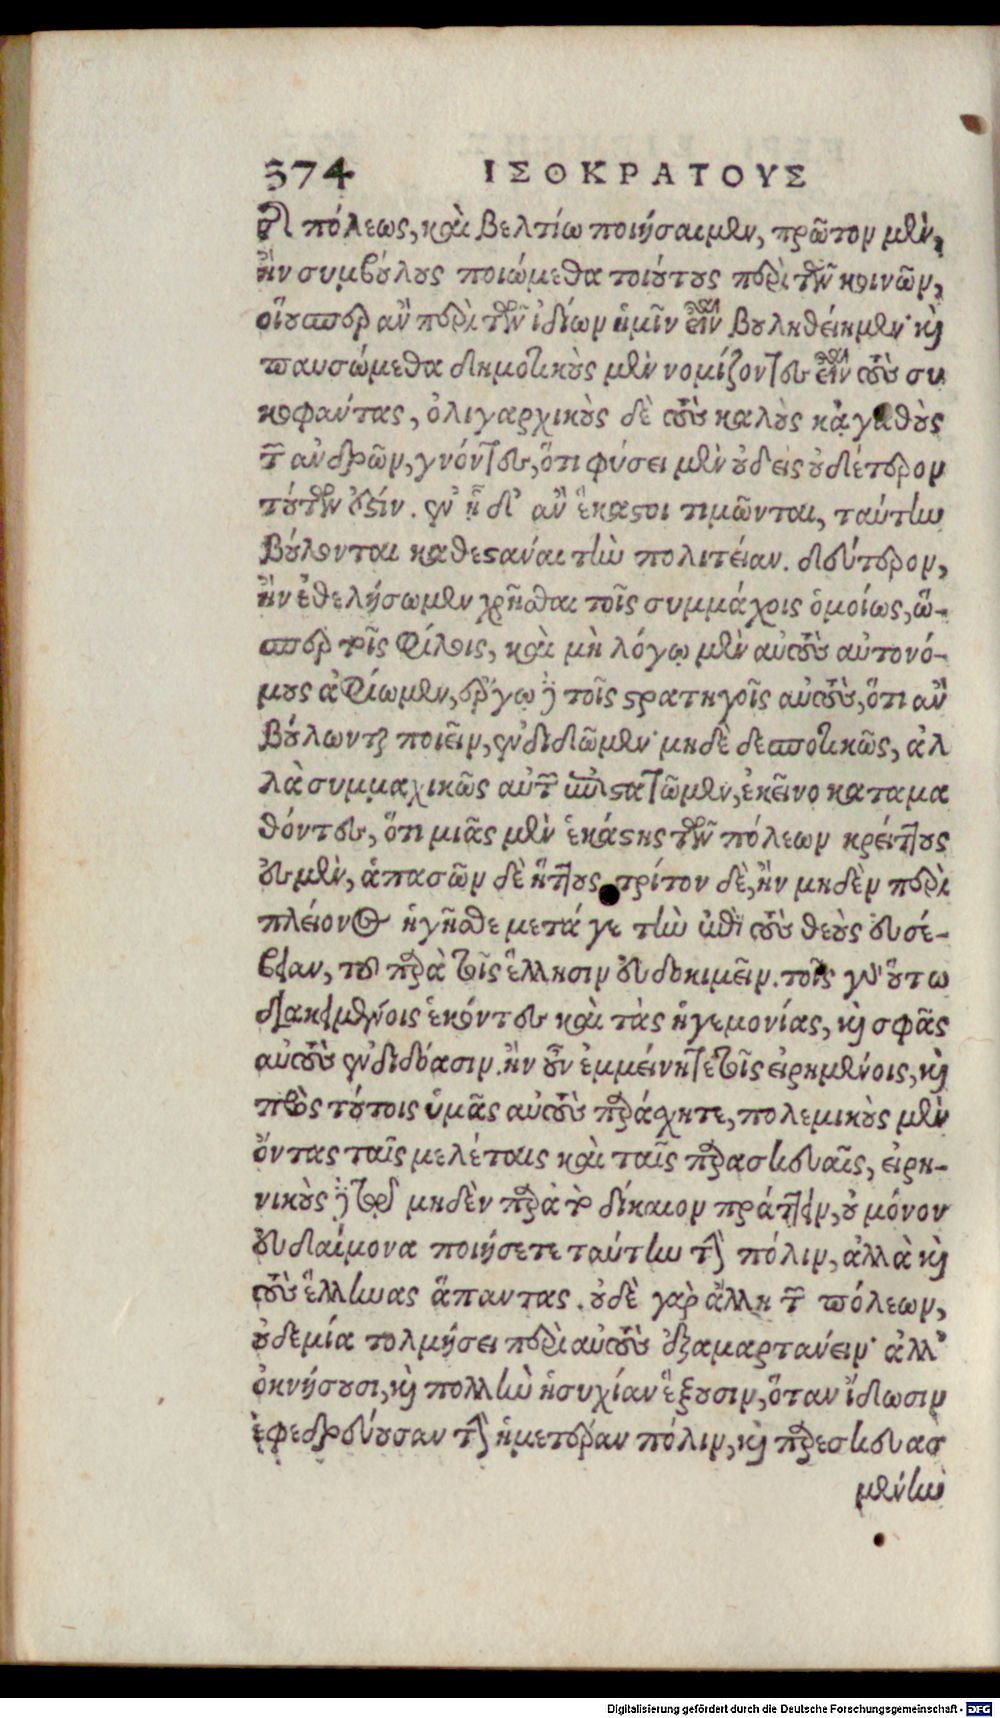 374 ΙΣΟΚΡΑΤΟΥΣ
τῆς πόλεως, καὶ βελτίω ποιήσαιμεν, πρῶτον μὲν,
ἢν συμβούλους ποιώμεθα τοιούτους περὶ τῶν κοινῶν,
οἵουσπερ ἂν περὶ τῶν ἰδίων ἡμῖν εἶναι βουληθείημεν· καὶ
παυσώμεθα δημοτικοὺς μὲν νομίζοντες εἶναι τοὺς συ
κοφαντας, ὀλιγαρχικοὺς δὲ τοὺς καλοὺς κἀγαθοὺς
τῶν ἀνδρῶν, γνόντες, ὅτι φύσει μὲν οὐδεὶς οὐδέτερον
τούτων ἐστίν. ἐν ᾗ δ' ἂν ἕκαστοι τιμῶνται, ταύτην
βούλονται καθεστάναι τὴν πολιτείαν. δεύτερον,
ἢν ἐθελήσωμεν χρῆσθαι τοῖς συμμάχοις ὁμοίως, ὥ-
σπερ τοῖς φίλοις, καὶ μὴ λόγῳ μὲν αὐτοὺς αὐτονό-
μους ἀφίωμεν, ἔργῳ δὲ τοῖς στρατηγοῖς αὐτοὺς, ὅτι ἂν
βούλωνται ποιεῖν, ἐνδιδῶμεν· μηδὲ δεσποτικῶς, ἀλ
λὰ συμμαχικῶς αὐτῶν ἐπιστατῶμεν, ἐκεῖνο καταμα
θόντες, ὅτι μιᾶς μὲν ἑκάστης τῶν πόλεων κρείττους
ἐσμὲν, ἁπασῶν δὲ ἥττους. τρίτον δὲ, ἢν μηδὲν περὶ
πλείονος ἡγῆσθε μετά γε τὴν περὶ τοὺς θεοὺς εὐσέ-
βειαν, τοῦ παρὰ τοῖς ἕλλησιν εὐδοκιμεῖν. τοῖς γὰρ οὕτω
διακειμένοις ἑκόντες καὶ τὰς ἡγεμονίας, καὶ σφᾶς
αὐτοὺς ἐνδιδόασιν. ἢν οὖν ἐμμείνητε τοῖς εἰρημένοις, καὶ
πρὸς τούτοις ὑμᾶς αὐτοὺς παράσχητε, πολεμικοὺς μὲν
ὄντας ταῖς μελέταις καὶ ταῖς παρασκευαῖς, εἰρη-
νικοὺς δὲ τῷ μηδὲν παρὰ τὸ δίκαιον πράττειν, οὐ μόνον
εὐδαίμονα ποιήσετε ταύτην τὴν πόλιν, ἀλλὰ καὶ
τοὺς ἕλληνας ἅπαντας. οὐδὲ γὰρ ἄλλη τῶν πόλεων,
οὐδεμία τολμήσει περὶ αὐτοὺς ἐξαμαρτάνειν· ἀλλ'
ὀκνήσουσι, καὶ πολλὴν ἡσυχίαν ἕξουσιν, ὅταν ἴδωσιν
ἐφεδρεύουσαν τὴν ἡμετέραν πόλιν, καὶ παρεσκευασ
μένην
Digitalisierung gefördert durch die Deutsche Forschungsgemeinschaft - DFG